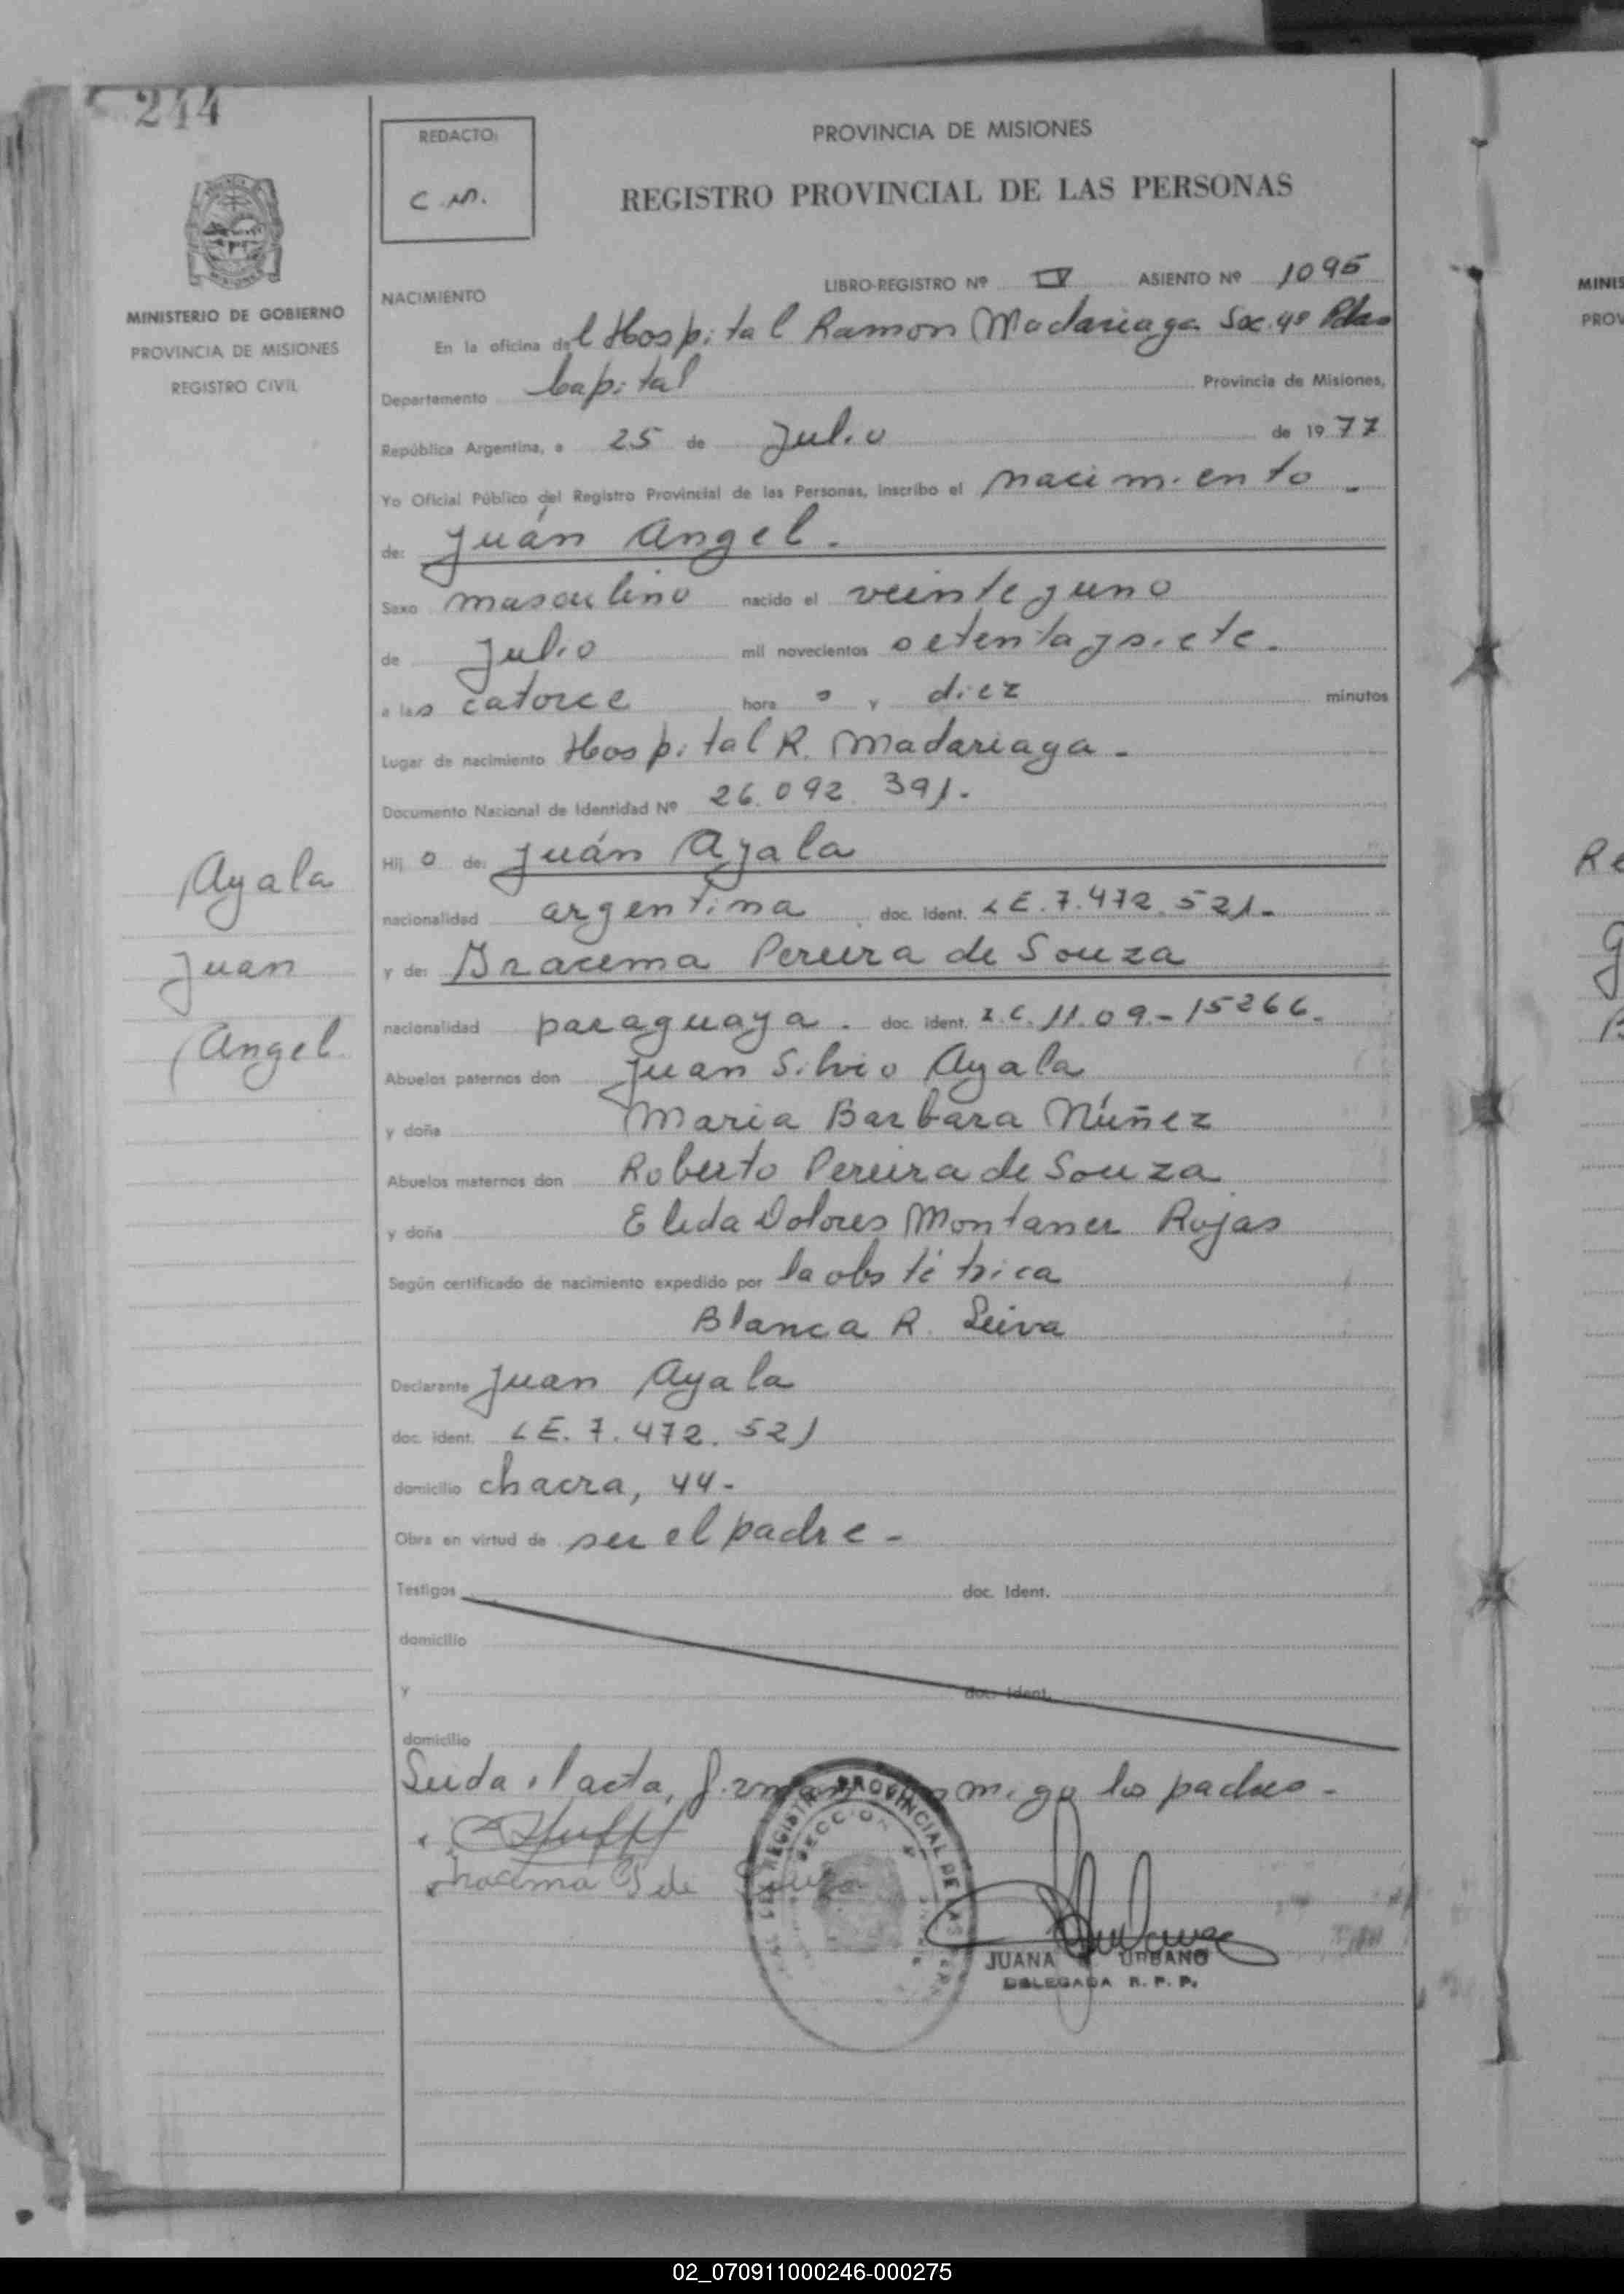 244
REDACTO:
C.M.
PROVINCIA DE MISIONES
REGISTRO PROVINCIAL DE LAS PERSONAS
MINISTERIO DE GOBIERNO
PROVINCIA DE MISIONES
REGISTRO CIVIL
NACIMIENTO LIBRO-REGISTRO Nº IV ASIENTO Nº 1095
En la oficina del Hospital Ramon Madariaga Sec. 4º Pdas
Departamento Capital Provincia de Misiones,
República Argentina, a 25 de Julio de 1977
Yo Oficial Público del Registro Provincial de las Personas, inscribo el nacimiento -
de: Juán Angel.
Sexo masculino nacido el veinteyuno
de Julio mil novecientos setentaysiete.
a las catorce hora s y diez minutos
Lugar de nacimiento Hospital R. Madariaga -
Documento Nacional de Identidad Nº 26.092.391.
Hij o de: Juán Ayala
nacionalidad argentina doc. ident. LE. 7.472.521.-
y de: Iracema Pereira de Souza
nacionalidad paraguaya. doc. ident. 11.09.-15266.
Abuelos paternos don Juan Silvio Ayala
y doña Maria Barbara Núñez
Abuelos maternos don Roberto Pereira de Souza
y doña Elida Dolores Montaner Rojas
Según certificado de nacimiento expedido por la obstétrica
Blanca R. Leiva
Declarante Juan Ayala
doc. ident. LE. 7.472.521
domicilio chacra, 44-
Obra en virtud de ser el padre -
Testigos doc. Ident.
domicilio
y doc. Ident.
domicilio
Leida el acta, firman conmigo los padres -
Iracema P de Souza
JUANA URBANO
DELEGADA R. P. P.
REGISTRO PROVINCIAL DE LAS PERSONAS
SECCION
Ayala
Juan
Angel
MINIS
PROV
Re
02_070911000246-000275